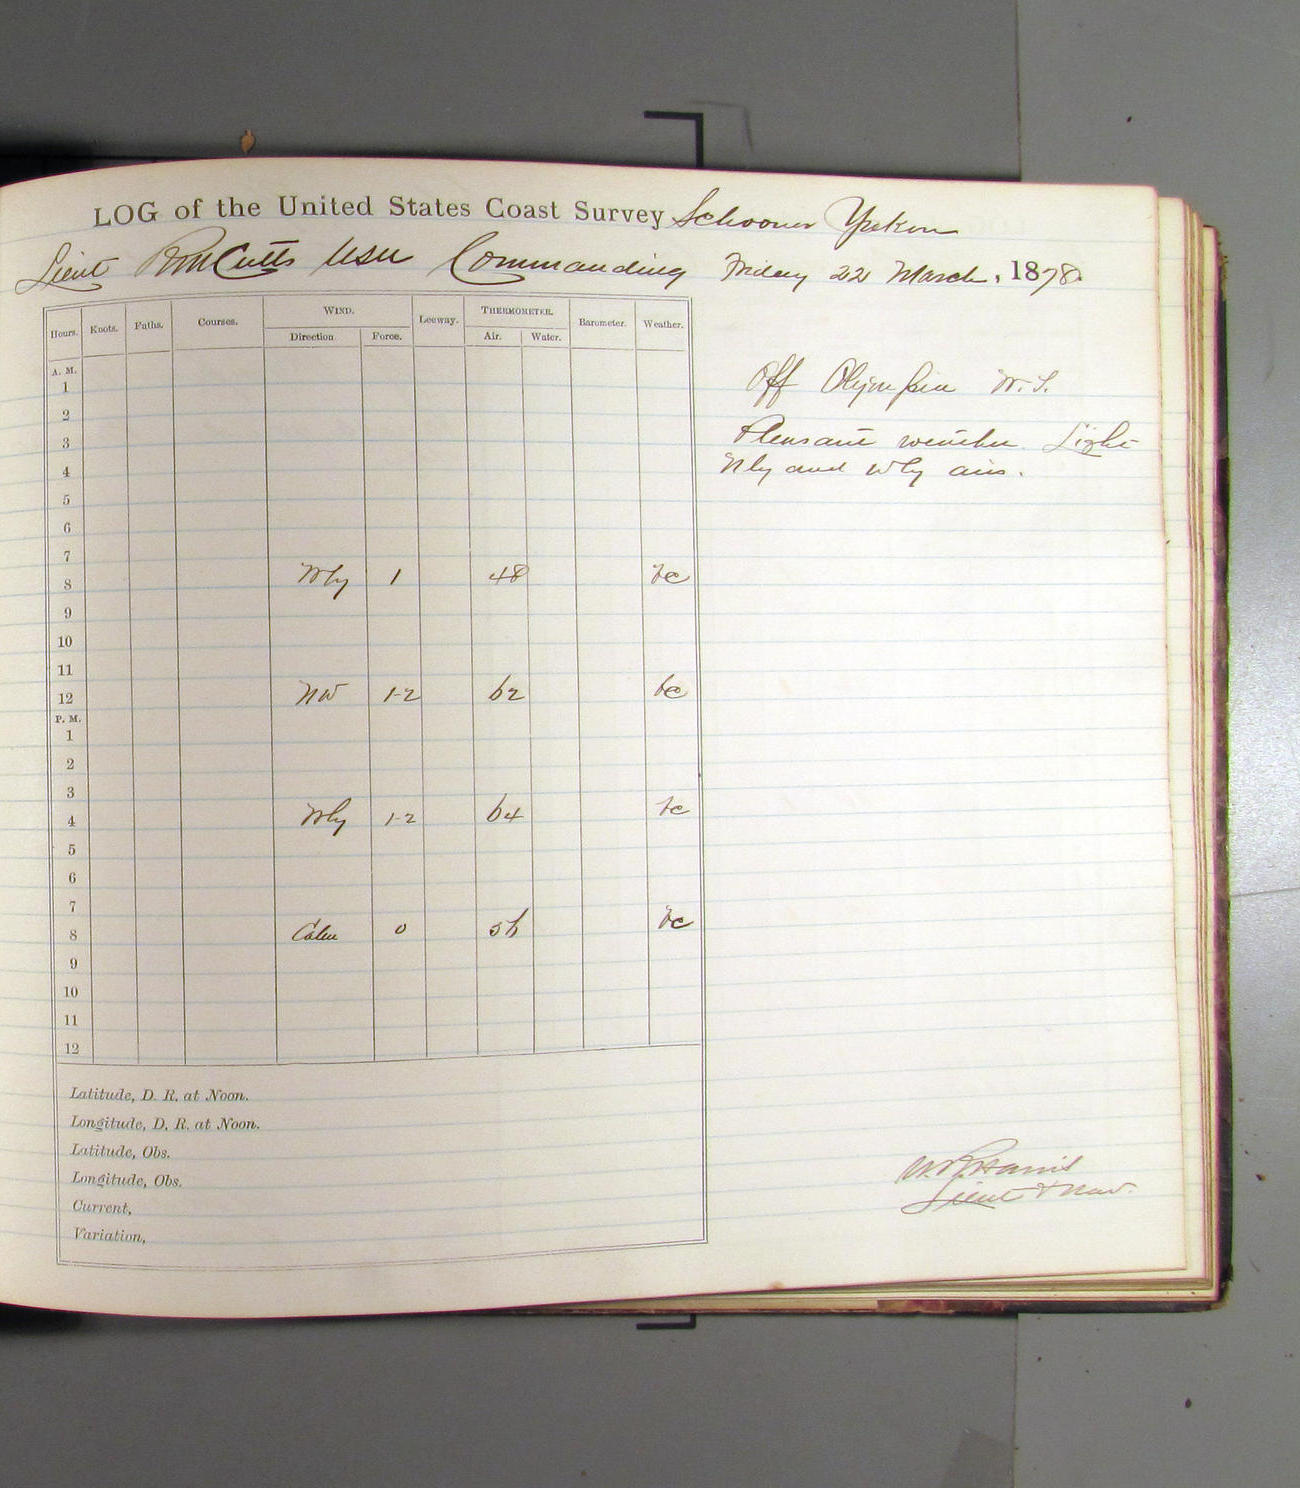 LOG of the United States Coast Survey Schooner Yukon
Lieut R M Cutts USN Commanding Friday 22 March, 1878.
Hours. Knots. Faths. Courses. WIND. Leeway. THERMOMETER. Barometer. Weather.
Direction Force. Air. Water.
A. M.
1
2
3
4
5
6
7
8 Wly 1 48 bc
9
10
11
12 NW 1-2 62 bc
P. M.
1
2
3
4 Wly 1-2 64 bc
5
6
7
8 Calm 0 56 bc
9
10
11
12
Latitude, D. R. at Noon.
Longitude, D. R. at Noon.
Latitude, Obs.
Longitude, Obs.
Current,
Variation,
Off Olympia W. T.
Pleasant weather. Light
Nly and Wly airs.
Harris
Lieut & Nav.